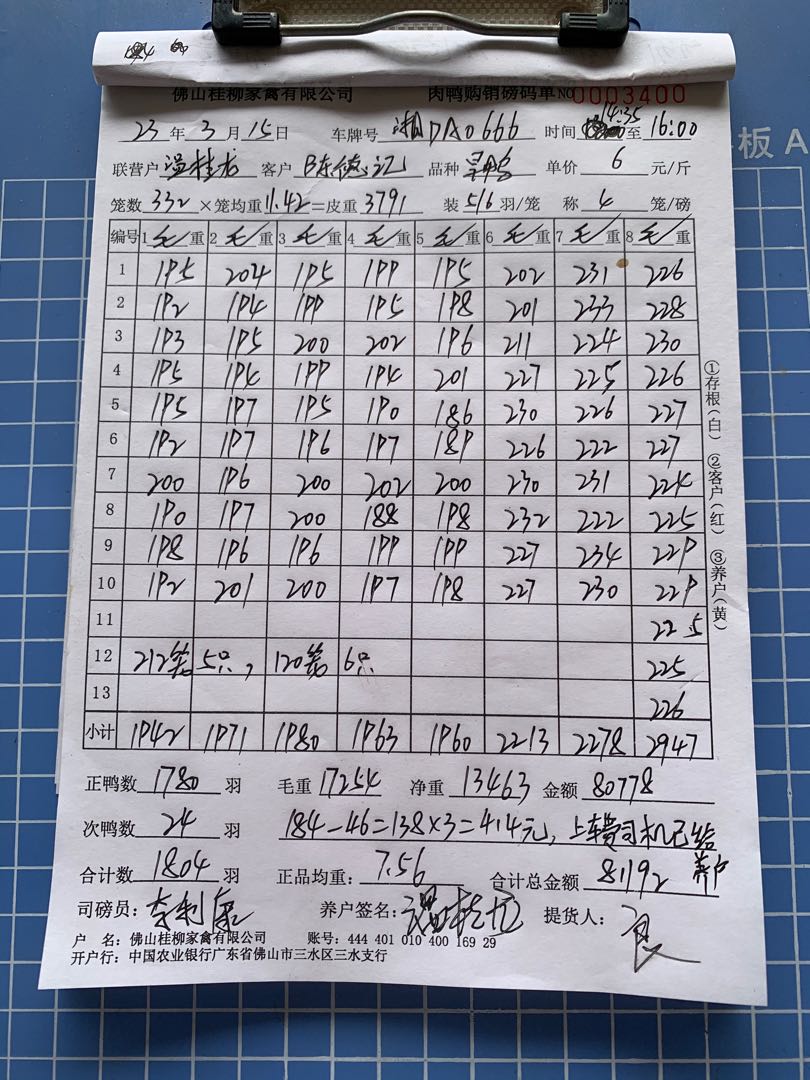 佛山桂柳家禽有限公司 肉鸭购销磅码单 NO 0003400
23 年 3 月 15 日 车牌号 湘DA0666 时间 14:35 至 16:00
联营户 温桂龙 客户 陈德记 品种 单价 6 元/斤
笼数 332 ×笼均重 11.42 =皮重 3791 装 5/6 羽/笼 称 4 笼/磅
编号 1 毛/重 2 毛/重 3 毛/重 4 毛/重 5 毛/重 6 毛/重 7 毛/重 8 毛/重
1 195 204 195 199 195 202 231 226
2 192 194 199 195 198 201 233 228
3 193 195 200 202 196 211 224 230
4 195 194 199 194 201 227 225 226
5 195 197 195 190 186 230 226 227
6 192 197 196 197 189 226 222 227
7 200 196 200 202 200 230 231 224
8 190 197 200 188 198 232 222 225
9 198 196 196 199 199 227 234 229
10 192 201 200 197 198 227 230 229
11 225
12 212笼 5只, 120笼 6只 225
13 226
小计 1942 1971 1980 1963 1960 2213 2278 2947
正鸭数 1780 羽 毛重 17254 净重 13463 金额 80778
次鸭数 24 羽 184-46=138×3=414元, 上车费司机已给
养户
合计数 1804 羽 正品均重: 7.56 合计总金额 81192
司磅员: 养户签名: 提货人:
户 名: 佛山桂柳家禽有限公司 账号: 444 401 010 400 169 29
开户行: 中国农业银行广东省佛山市三水区三水支行
①存根(白) ②客户(红) ③养户(黄)
板 A